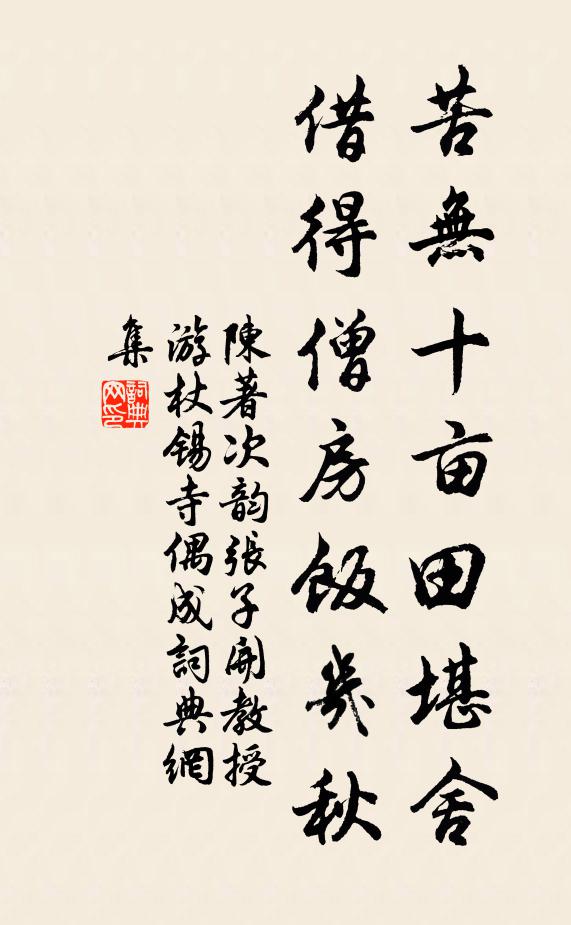 苦無十亩田堪舍
借得僧房飯幾秋
陳著次韵張子開教授
游杖錫寺偶成詞典網
集
詞典
网印